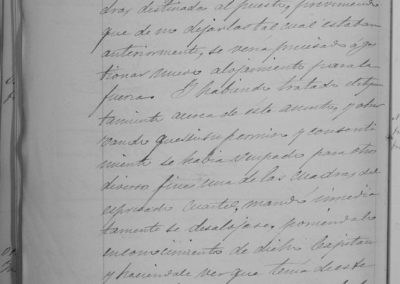 dras destinada al puesto, previniendo
que de no dejar las tal cual estaban
anteriormente, se vería precisado a ges
tionar nuevo alojamiento para la
fuerza. Y habiendo tratado deteni
damente acerca de este asunto, y obser
vando que sin su permiso y consenti
miento se había ocupado para otro
diverso fin una de las cuadras del
espresado cuartel, mandó inmedia
tamente se desalojase, poniendolo
en conocimiento de dicho Capitan
y haciendole ver que tenia de este